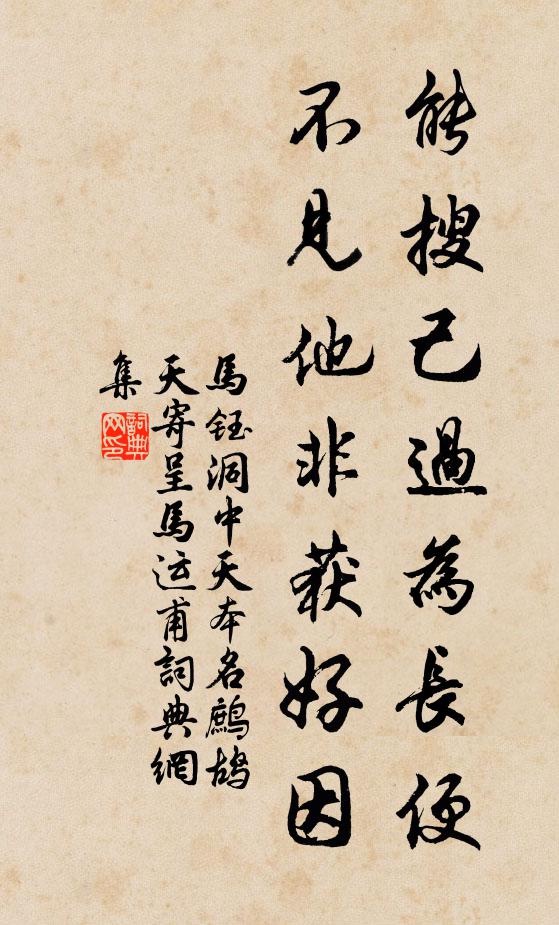 能搜己過為長便
不見他非获好因
馬鈺洞中天本名鷓鴣
天寄呈馬运甫詞典網
集
詞典
网印